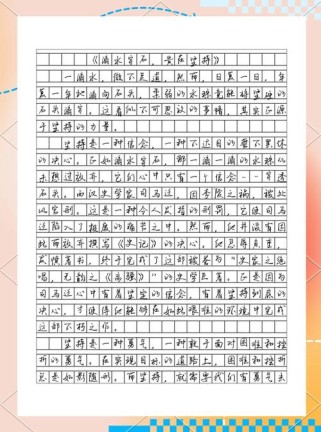 《滴水穿石，贵在坚持》
一滴水，微不足道，然而，日复一日，年
复一年地滴向石头，柔弱的水珠竟能将坚硬的
石头滴穿。这看似不可思议的事情，其实正源
于坚持的力量。
坚持是一种信念，一种不达目的誓不罢休
的决心。正如滴水穿石，那一滴一滴的水珠从
未想过放弃，它们心中只有一个信念——穿透
石头。西汉史学家司马迁，因李陵之祸，被处
以宫刑。这是一种令人发指的刑罚，它使司马
迁陷入了极度的痛苦之中。然而，他并没有因
此而放弃撰写《史记》的决心。他忍辱负重，
发愤著书，终于完成了这部被誉为“史家之绝
唱，无韵之《离骚》”的史学巨著。正是因为
司马迁心中有着坚定的信念，有着坚持到底的
决心，才使得他能够在如此艰难的环境中完成
这部不朽之作。
坚持是一种勇气，一种敢于面对困难和挫
折的勇气。在实现目标的道路上，困难和挫折
总是如影随形。而坚持，就需要我们有勇气去